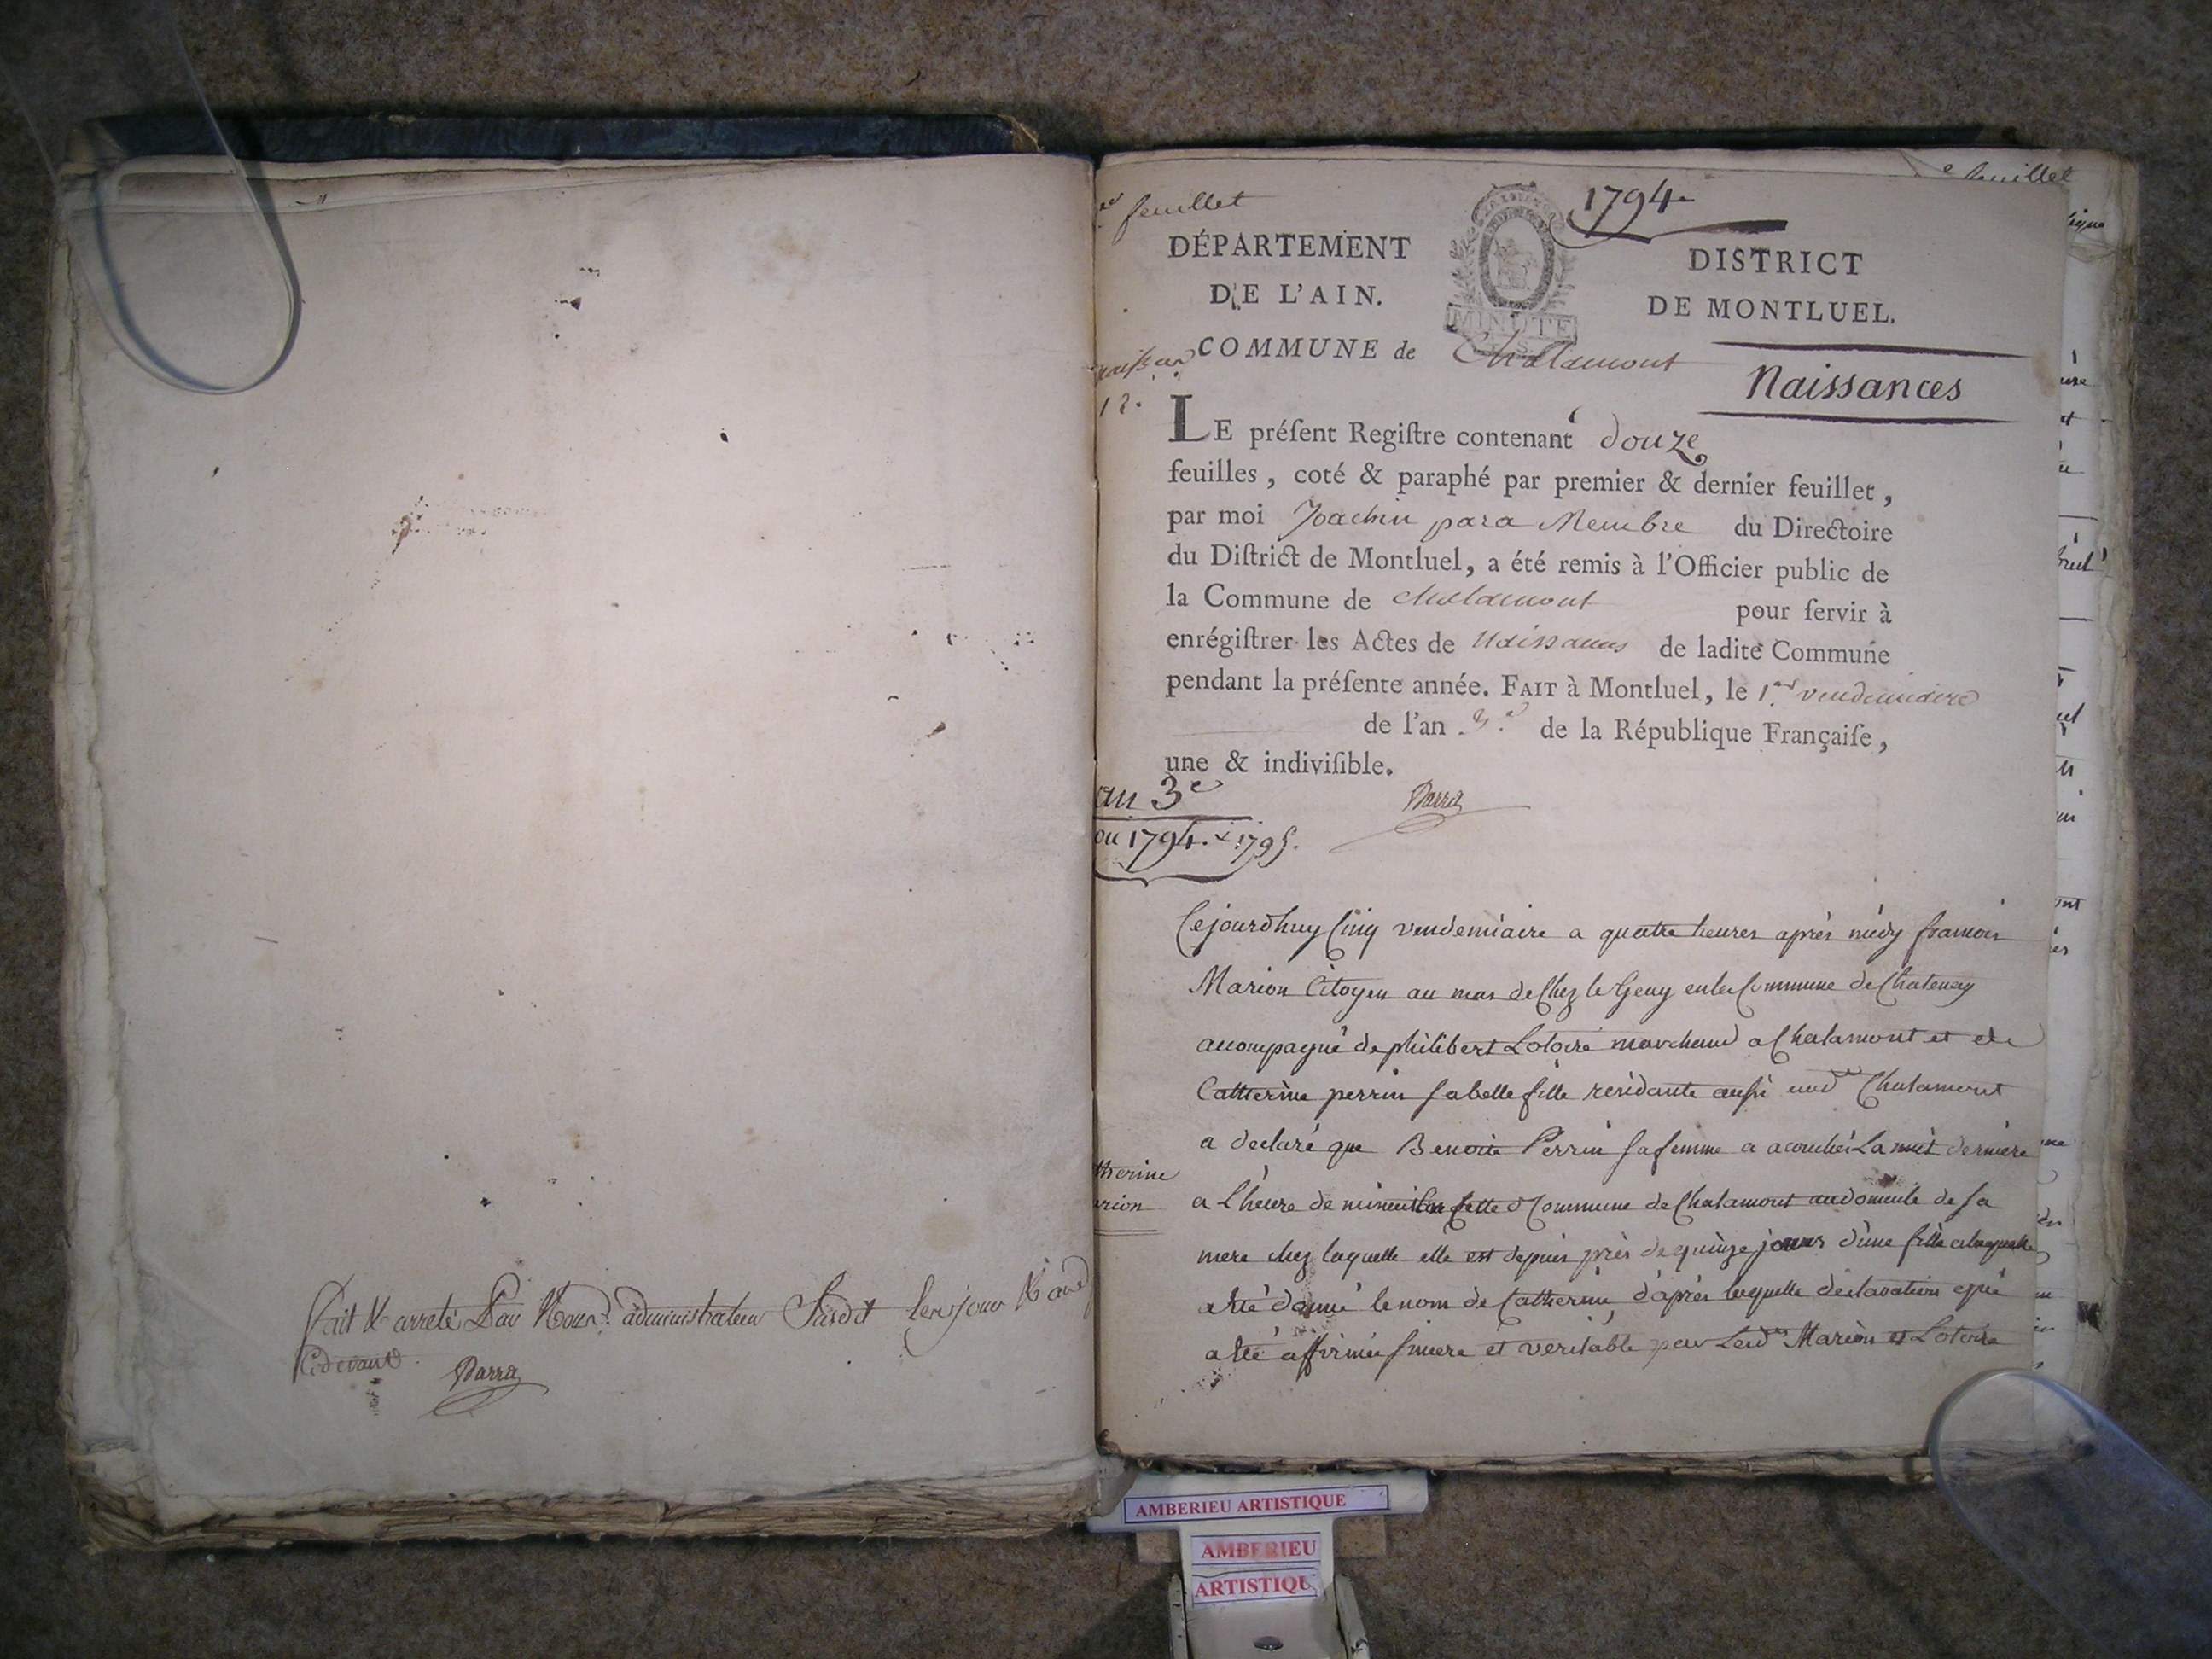 Fait & arreté Par Nous administrateur Susdit les jour & an
Cidevant
Parra
er feuillet
1794
DÉPARTEMENT
DE L'AIN.
MINUTE
DISTRICT
DE MONTLUEL.
COMMUNE de Chalamont
Naissances
12.
LE préſent Regiſtre contenant douze
feuilles, coté & paraphé par premier & dernier feuillet,
par moi Joachin para Membre du Directoire
du Diſtrict de Montluel, a été remis à l'Officier public de
la Commune de chalamont pour ſervir à
enrégiſtrer les Actes de Naissances de ladite Commune
pendant la préſente année. FAIT à Montluel, le 1.er vendemiaire
de l'an 3.e de la République Françaiſe,
une & indiviſible.
an 3e
ou 1794. & 1795.
Parra
Cejourdhuy Cinq vendemiaire a quatre heures après midy francois
Marion Citoyen au mas de Chez le Geny en la Commune de Chatenay
accompagné de philibert Lotoire marchand a Chalamont et de
Catherine perrin sa belle fille residante aussi aud Chalamont
a declaré que Benoite Perrin sa femme a acouchée La nuit derniere
a L'heure de minuit en cette Commune de Chalamont au domicile de sa
mere chez laquelle elle est depuis près de quinze jours d'une fille a laquelle
a été donné le nom de Catherine, d'après laquelle declaration qui
a été affirmée sincere et veritable par Lesds Marion et Lotoire
therine
rion
feuillet
AMBERIEU ARTISTIQUE
AMBERIEU
ARTISTIQU